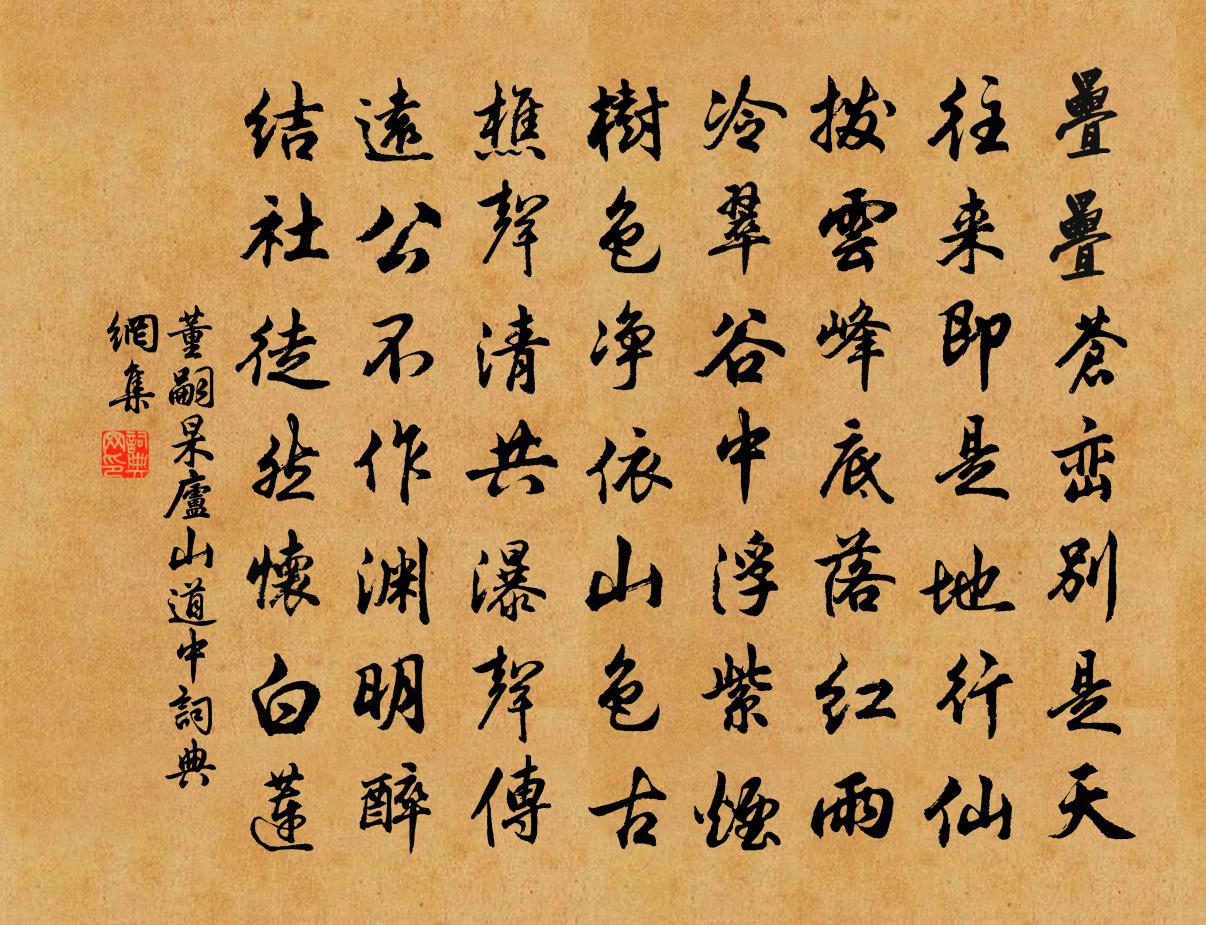 疊疊蒼峦別是天
往来即是地行仙
拨雲峰底落红雨
冷翠谷中浮紫煙
樹色净依山色古
樵聲清共瀑聲傳
遠公不作渊明醉
结社徒然懷白蓮
董嗣杲廬山道中詞典
網集
詞典
网印